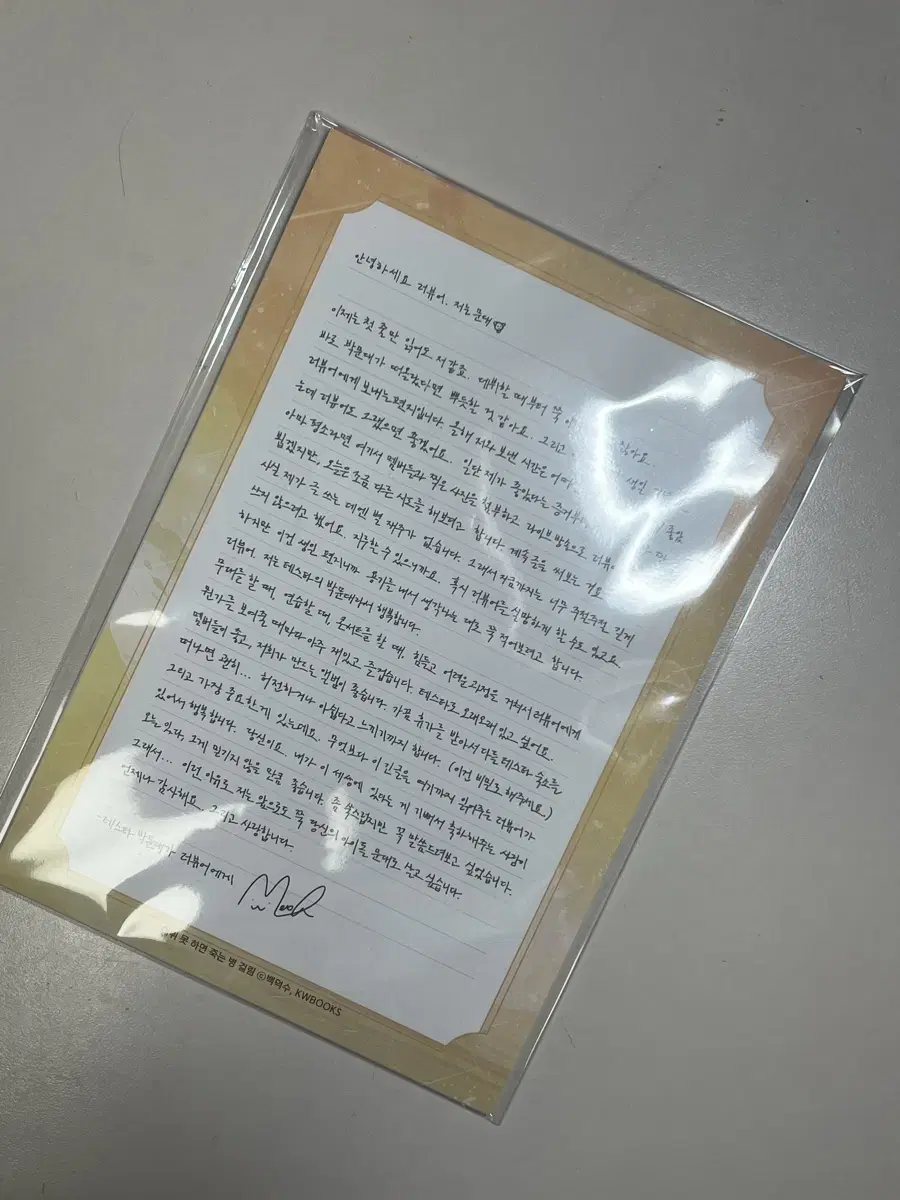 안녕하세요 러뷰어. 저는 문대
이제는 첫 줄만 읽어도 저 같죠. 데뷔할 때부터 쭉
바로 박문대가 떠올랐다면 뿌듯할 것 같아요. 그리고
러뷰어에게 보내는 편지입니다. 올해 저와 보낸 시간은 생일
는데 러뷰어도 그랬으면 좋겠어요. 일단 제가 좋았다는 좋았
아마 평소라면 여기서 멤버들과 찍은 사진을 첨부하고 라이브 방송으로
뵙겠지만, 오늘은 조금 다른 시도를 해보려고 합니다. 계속 글을 써보는 거요.
사실 제가 글 쓰는 데엔 별 재주가 없습니다. 그래서 지금까지는 너무 주절주절 길게
쓰지 않으려고 했어요. 지루할 수 있으니까요. 혹시 러뷰어를 실망하게 할 수도 있고요.
하지만 이건 생일 편지니까 용기를 내서 생각하는 대로 쭉 적어보려고 합니다.
러뷰어. 저는 테스타의 박문대라서 행복합니다.
무대를 할 때, 연습할 때, 콘서트를 할 때, 힘들고 어려운 과정을 거쳐서 러뷰어에게
뭔가를 보여줄 때마다 아주 재밌고 즐겁습니다. 테스타로 오래오래 있고 싶어요.
멤버들이 좋고, 저희가 만드는 앨범이 좋습니다. 가끔 휴가를 받아서 다들 테스타 숙소를
떠나면 괜히... 허전하거나 아쉽다고 느끼기까지 합니다. (이건 비밀로 해주세요.)
그리고 가장 중요한 게 있는데요. 무엇보다 이 긴 글을 여기까지 읽어주는 러뷰어가
있어서 행복합니다. 당신이요. 내가 이 세상에 있다는 게 기뻐서 축하해주는 사람이
오늘 있다, 그게 믿기지 않을 만큼 좋습니다. 좀 쑥스럽지만 꼭 말씀드려보고 싶었습니다.
그래서... 이런 이유로 저는 앞으로도 쭉 당신의 아이돌 문대로 살고 싶습니다.
언제나 감사해요. 그리고 사랑합니다.
-테스타 박문대가 러뷰어에게
못 하면 죽는 병 걸림 ©백덕수, KWBOOKS